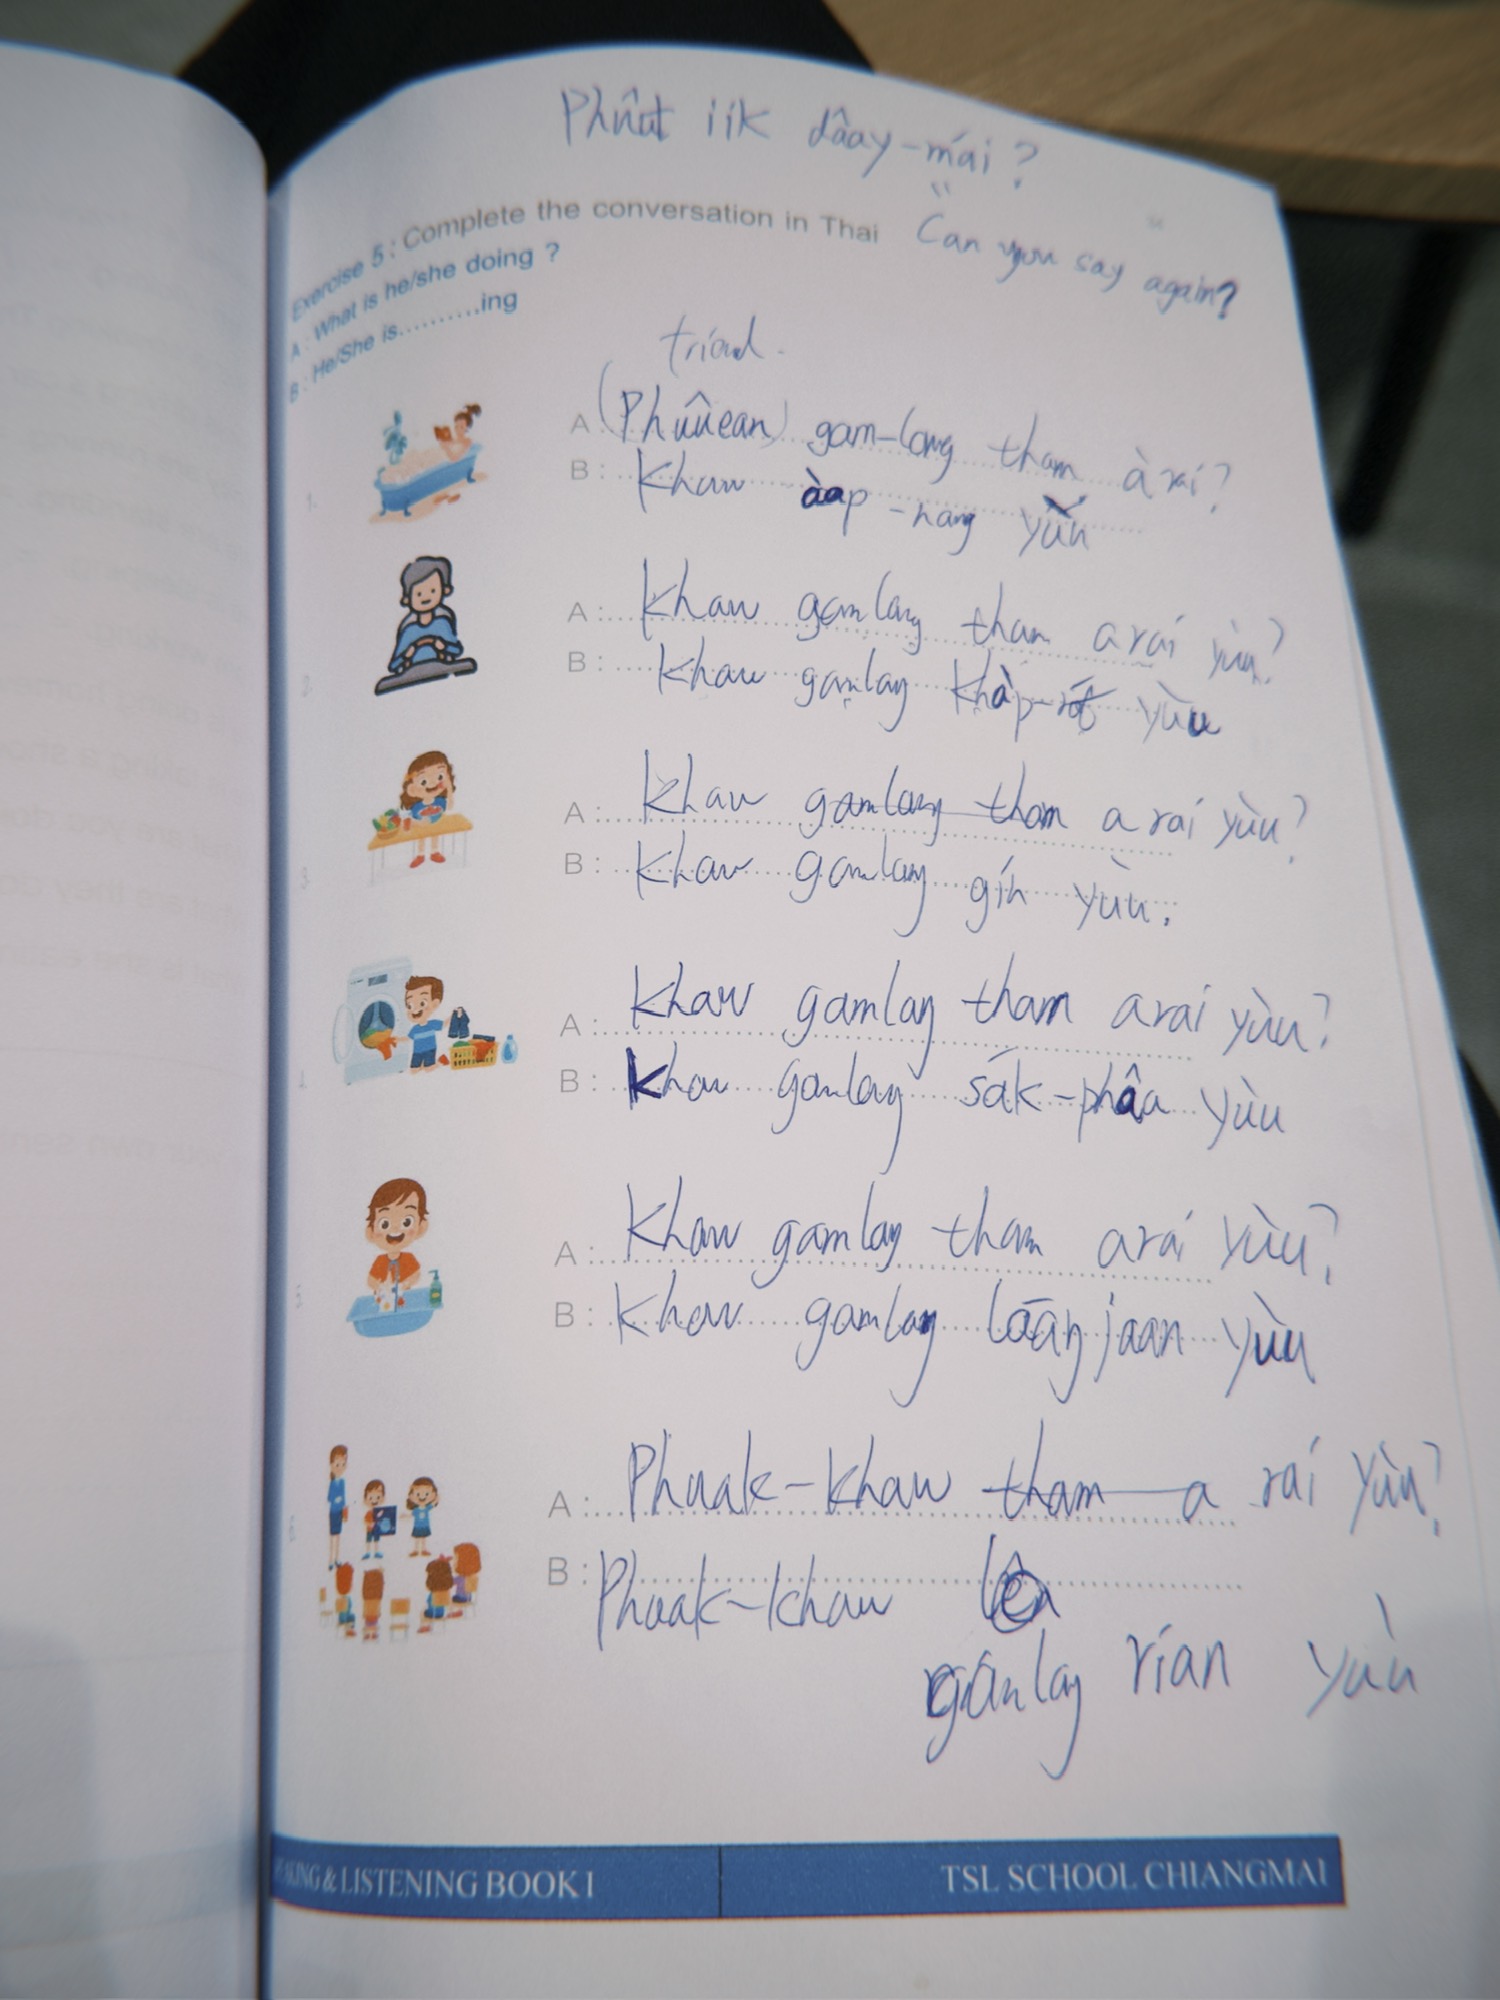 Phûut iik dâay-mái?
"
Exercise 5 : Complete the conversation in Thai
Can you say again?
A : What is he/she doing ?
B : He/She is..........ing
friend.
1.
A (Phʉ̂ʉean) gam-lang tham à rai?
B : Khaw àap-nang yùu
A : Khaw gamlang tham arai yùu?
B : Khaw gamlang khàp-rót yùu
3.
A : Khaw gamlang tham arai yùu?
B : Khaw gamlang gin yùu.
4.
A : Khaw gamlang tham arai yùu?
B : Khaw gamlang sák-phâa yùu
5.
A : Khaw gamlang tham arai yùu?
B : Khaw gamlang láang jaan yùu
A : Phuak-khaw tham a rai yùu?
B : Phuak-khaw
gamlang rian yùu
KING & LISTENING BOOK I
TSL SCHOOL CHIANGMAI